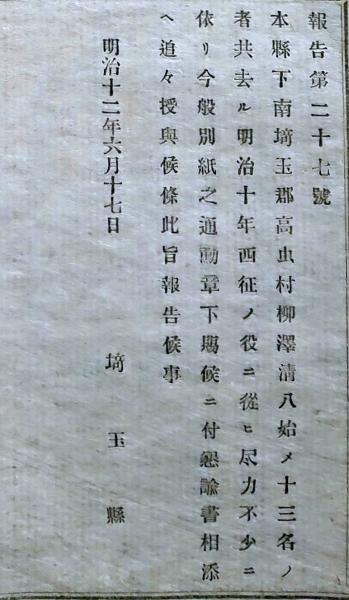 報告第二十七號
本縣下南埼玉郡高虫村柳澤清八始メ十三名ノ
者共去ル明治十年西征ノ役ニ從ヒ尽力不少ニ
依リ今般別紙之通勳章下賜候ニ付懇諭書相添
ヘ追々授與候條此旨報告候事
明治十二年六月十七日
埼玉縣